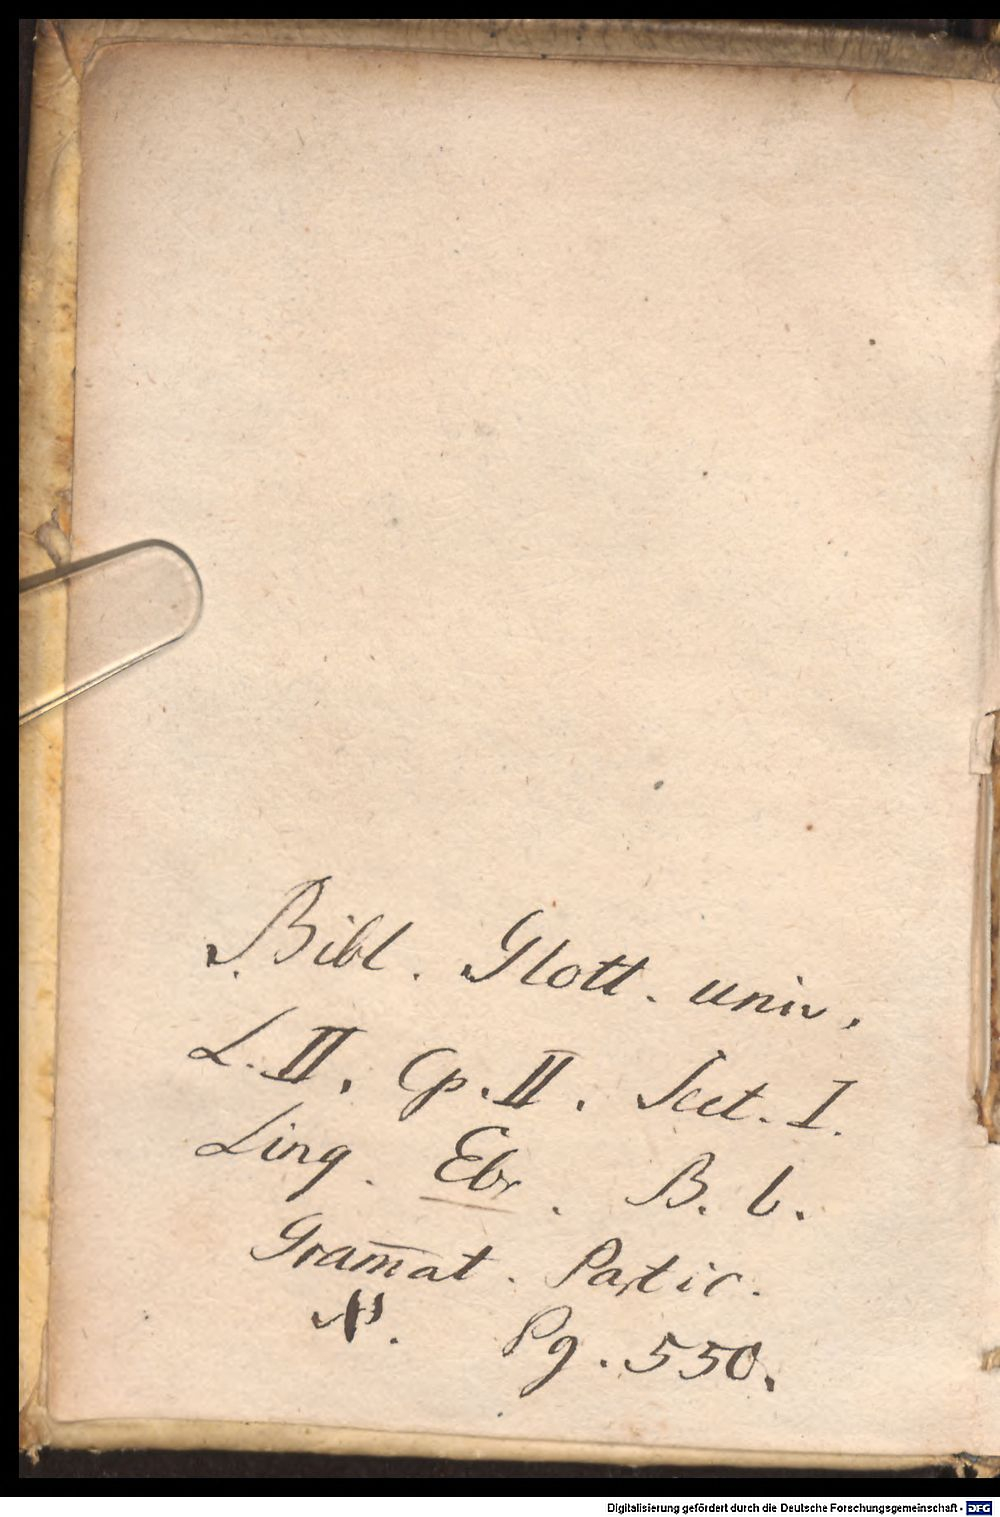 Bibl. Glott. univ.
L. II. Cp. II. Sect. I.
Ling. Ebr. B. b.
Gram̅at. Partic.
Pg. 550.
Digitalisierung gefördert durch die Deutsche Forschungsgemeinschaft - DFG